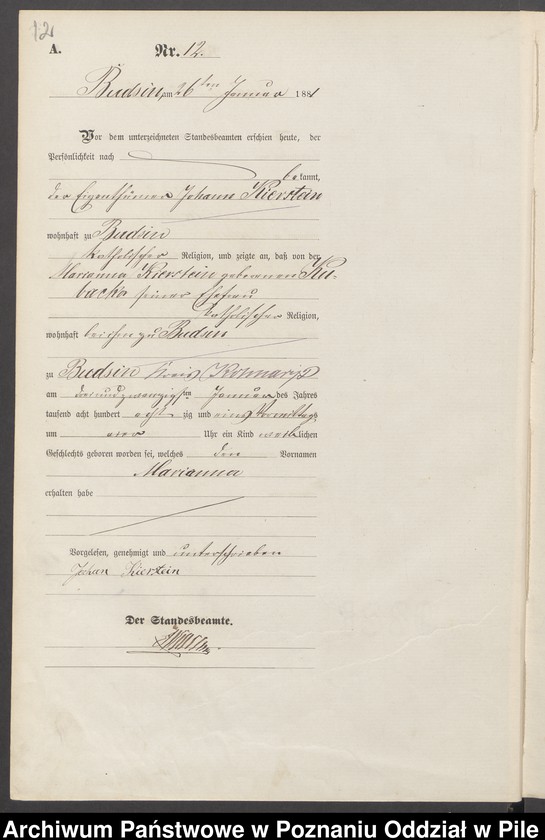 12
A. Nr. 12.
Budsin, am 26ten Januar 1881
Vor dem unterzeichneten Standesbeamten erschien heute, der
Persönlichkeit nach
bekannt,
der Eigenthümer Johann Kierstein
wohnhaft zu Budsin
katholischer Religion, und zeigte an, daß von der
Marianna Kierstein gebornen Ku-
backa seiner Ehefrau
katholischer Religion,
wohnhaft bei ihm zu Budsin
zu Budsin Kreis Kolmar
am dreiundzwanzigsten Januar des Jahres
tausend acht hundert achtzig und eins Vormittags
um Uhr ein Kind weiblichen
Geschlechts geboren worden sei, welches den Vornamen
Marianna
erhalten habe
Vorgelesen, genehmigt und unterschrieben
Johan Kierstein
Der Standesbeamte.
Archiwum Państwowe w Poznaniu Oddział w Pile